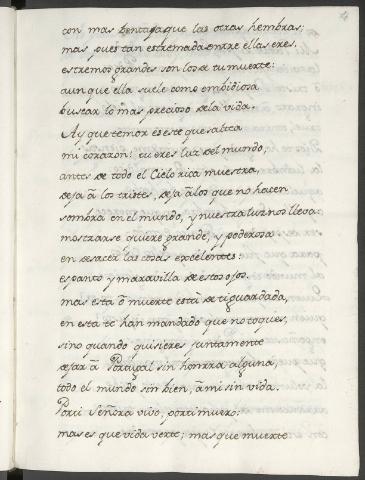 con mas bentaja que las otras hembras;
mas pues tan estremada entre ellas eres,
estremos grandes son los de tu muerte:
aunque ella suele como embidiosa
buscar lo mas precioso de la vida.
Ay que temor es este que saltea
mi corazon! tu eres luz del mundo,
antes de todo el Cielo rica muestra,
deja â los tristes, deja â los que no hacen
sombra en el mundo, y nuestra luz nos lleva:
mostrarse quiere grande, y poderosa
en desacer las cosas excelentes:
espanto y maravilla de estos ojos.
mas esta ô muerte està de ti guardada,
en esta te han mandado que no toques,
sino quando quisieres juntamente
dejar â Portugal sin honrra alguna,
todo el mundo sin bien, â mi sin vida.
Por ti Señora vivo, por ti muero;
mas es que vida verte; mas que muerte